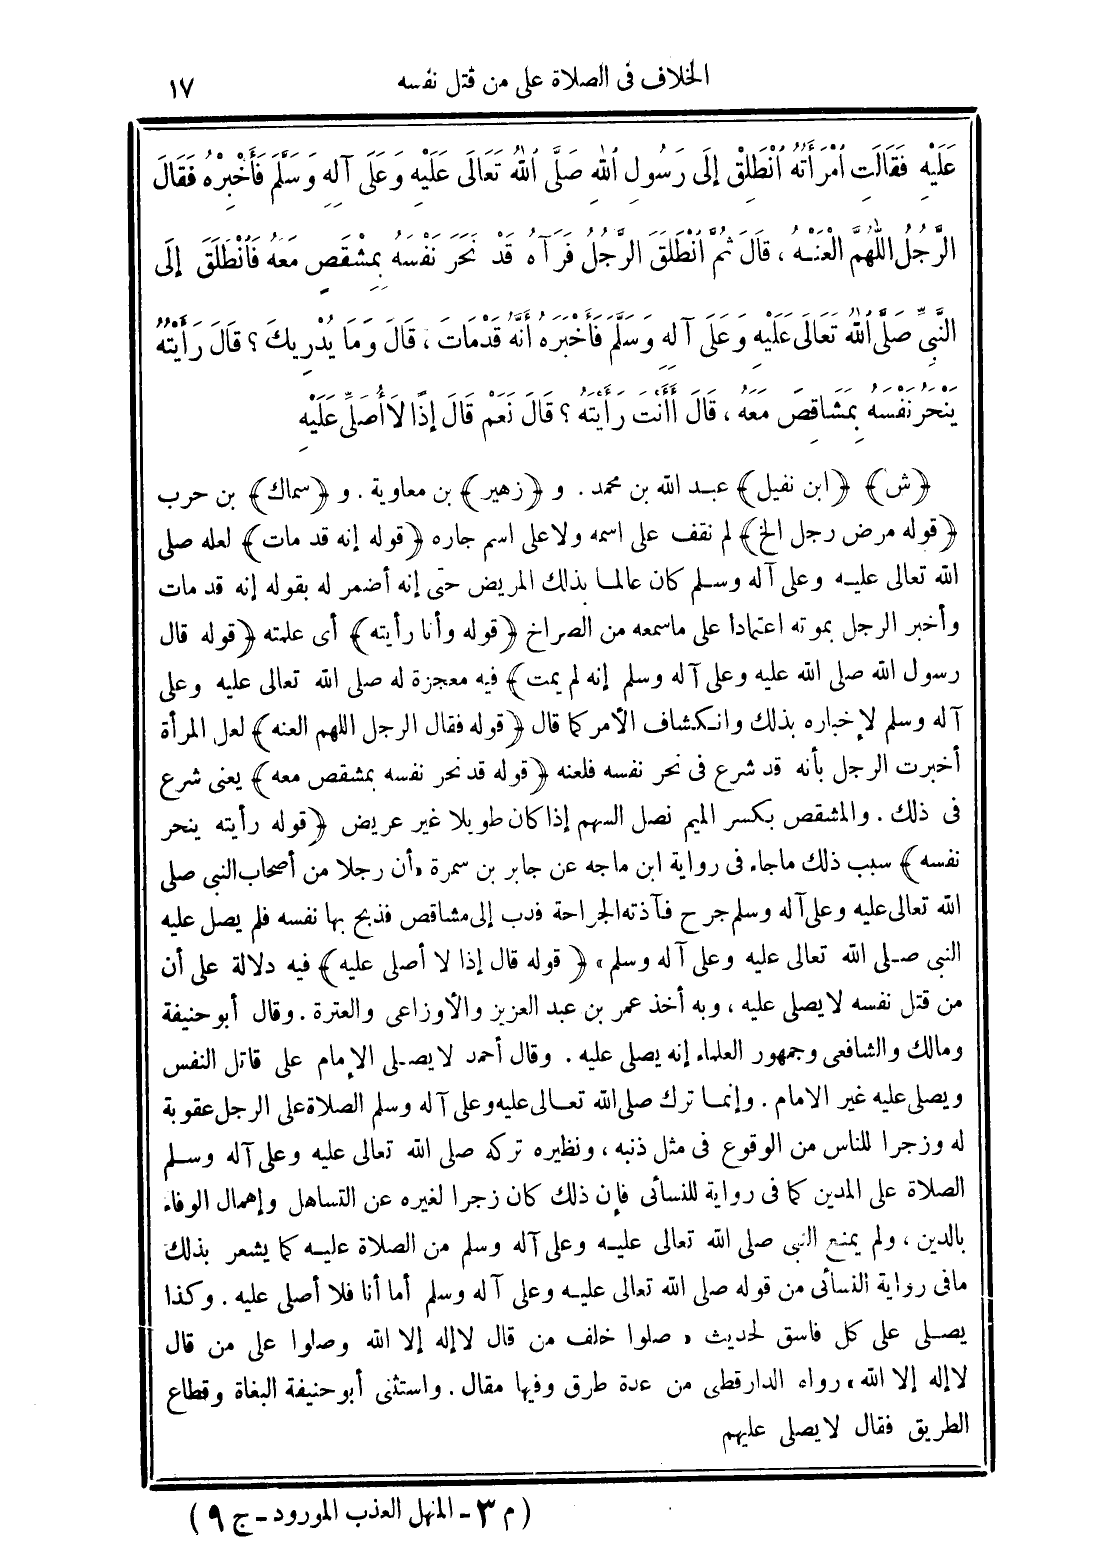 الخلاف فى الصلاة على من قتل نفسه
١٧
عَلَيْهِ فَقَالَتِ ٱمْرَأَتُهُ ٱنْطَلِقْ إِلَى رَسُولِ ٱللهِ صَلَّى ٱللهُ تَعَالَى عَلَيْهِ وَعَلَى آلِهِ وَسَلَّمَ فَأَخْبِرْهُ فَقَالَ
الرَّجُلُ اللّٰهُمَّ الْعَنْهُ ، قَالَ ثُمَّ ٱنْطَلَقَ الرَّجُلُ فَرَآهُ قَدْ نَحَرَ نَفْسَهُ بِمِشْقَصٍ مَعَهُ فَٱنْطَلَقَ إِلَى
النَّبِىِّ صَلَّى ٱللهُ تَعَالَى عَلَيْهِ وَعَلَى آلِهِ وَسَلَّمَ فَأَخْبَرَهُ أَنَّهُ قَدْ مَاتَ ، قَالَ وَمَا يُدْرِيكَ ؟ قَالَ رَأَيْتُهُ
يَنْحَرُ نَفْسَهُ بِمَشَاقِصَ مَعَهُ ، قَالَ أَأَنْتَ رَأَيْتَهُ ؟ قَالَ نَعَمْ قَالَ إِذًا لَا أُصَلِّىَ عَلَيْهِ
﴿ش﴾ ﴿ابن نفيل﴾ عبد الله بن محمد . و ﴿زهير﴾ بن معاوية . و ﴿سماك﴾ بن حرب
﴿قوله مرض رجل الخ﴾ لم نقف على اسمه ولا على اسم جاره ﴿قوله إنه قد مات﴾ لعله صلى
الله تعالى عليه وعلى آله وسلم كان عالما بذلك المريض حتى إنه أضمر له بقوله إنه قد مات
وأخبر الرجل بموته اعتمادا على ماسمعه من الصراخ ﴿قوله وأنا رأيته﴾ أى علمته ﴿قوله قال
رسول الله صلى الله عليه وعلى آله وسلم إنه لم يمت﴾ فيه معجزة له صلى الله تعالى عليه وعلى
آله وسلم لإخباره بذلك وانكشاف الأمر كما قال ﴿قوله فقال الرجل اللهم العنه﴾ لعل المرأة
أخبرت الرجل بأنه قد شرع فى نحر نفسه فلعنه ﴿قوله قد نحر نفسه بمشقص معه﴾ يعنى شرع
فى ذلك . والمشقص بكسر الميم نصل السهم إذا كان طويلا غير عريض ﴿قوله رأيته ينحر
نفسه﴾ سبب ذلك ماجاء فى رواية ابن ماجه عن جابر بن سمرة «أن رجلا من أصحاب النبى صلى
الله تعالى عليه وعلى آله وسلم جرح فآذته الجراحة فدب إلى مشاقص فذبح بها نفسه فلم يصل عليه
النبى صلى الله تعالى عليه وعلى آله وسلم» ﴿قوله قال إذا لا أصلى عليه﴾ فيه دلالة على أن
من قتل نفسه لايصلى عليه ، وبه أخذ عمر بن عبد العزيز والأوزاعى والعترة . وقال أبو حنيفة
ومالك والشافعى وجمهور العلماء إنه يصلى عليه . وقال أحمد لايصلى الإمام على قاتل النفس
ويصلى عليه غير الامام . وإنما ترك صلى الله تعالى عليه وعلى آله وسلم الصلاة على الرجل عقوبة
له وزجرا للناس من الوقوع فى مثل ذنبه ، ونظيره تركه صلى الله تعالى عليه وعلى آله وسلم
الصلاة على المدين كما فى رواية للنسائى فإن ذلك كان زجرا لغيره عن التساهل وإهمال الوفاء
بالدين ، ولم يمنع النبى صلى الله تعالى عليه وعلى آله وسلم من الصلاة عليه كما يشعر بذلك
مافى رواية النسائى من قوله صلى الله تعالى عليه وعلى آله وسلم أما أنا فلا أصلى عليه . وكذا
يصلى على كل فاسق لحديث «صلوا خلف من قال لاإله إلا الله وصلوا على من قال
لاإله إلا الله» رواه الدارقطى من عدة طرق وفيها مقال . واستثنى أبو حنيفة البغاة وقطاع
الطريق فقال لايصلى عليهم
(م ٣ - المنهل العذب المورود - ج ٩)